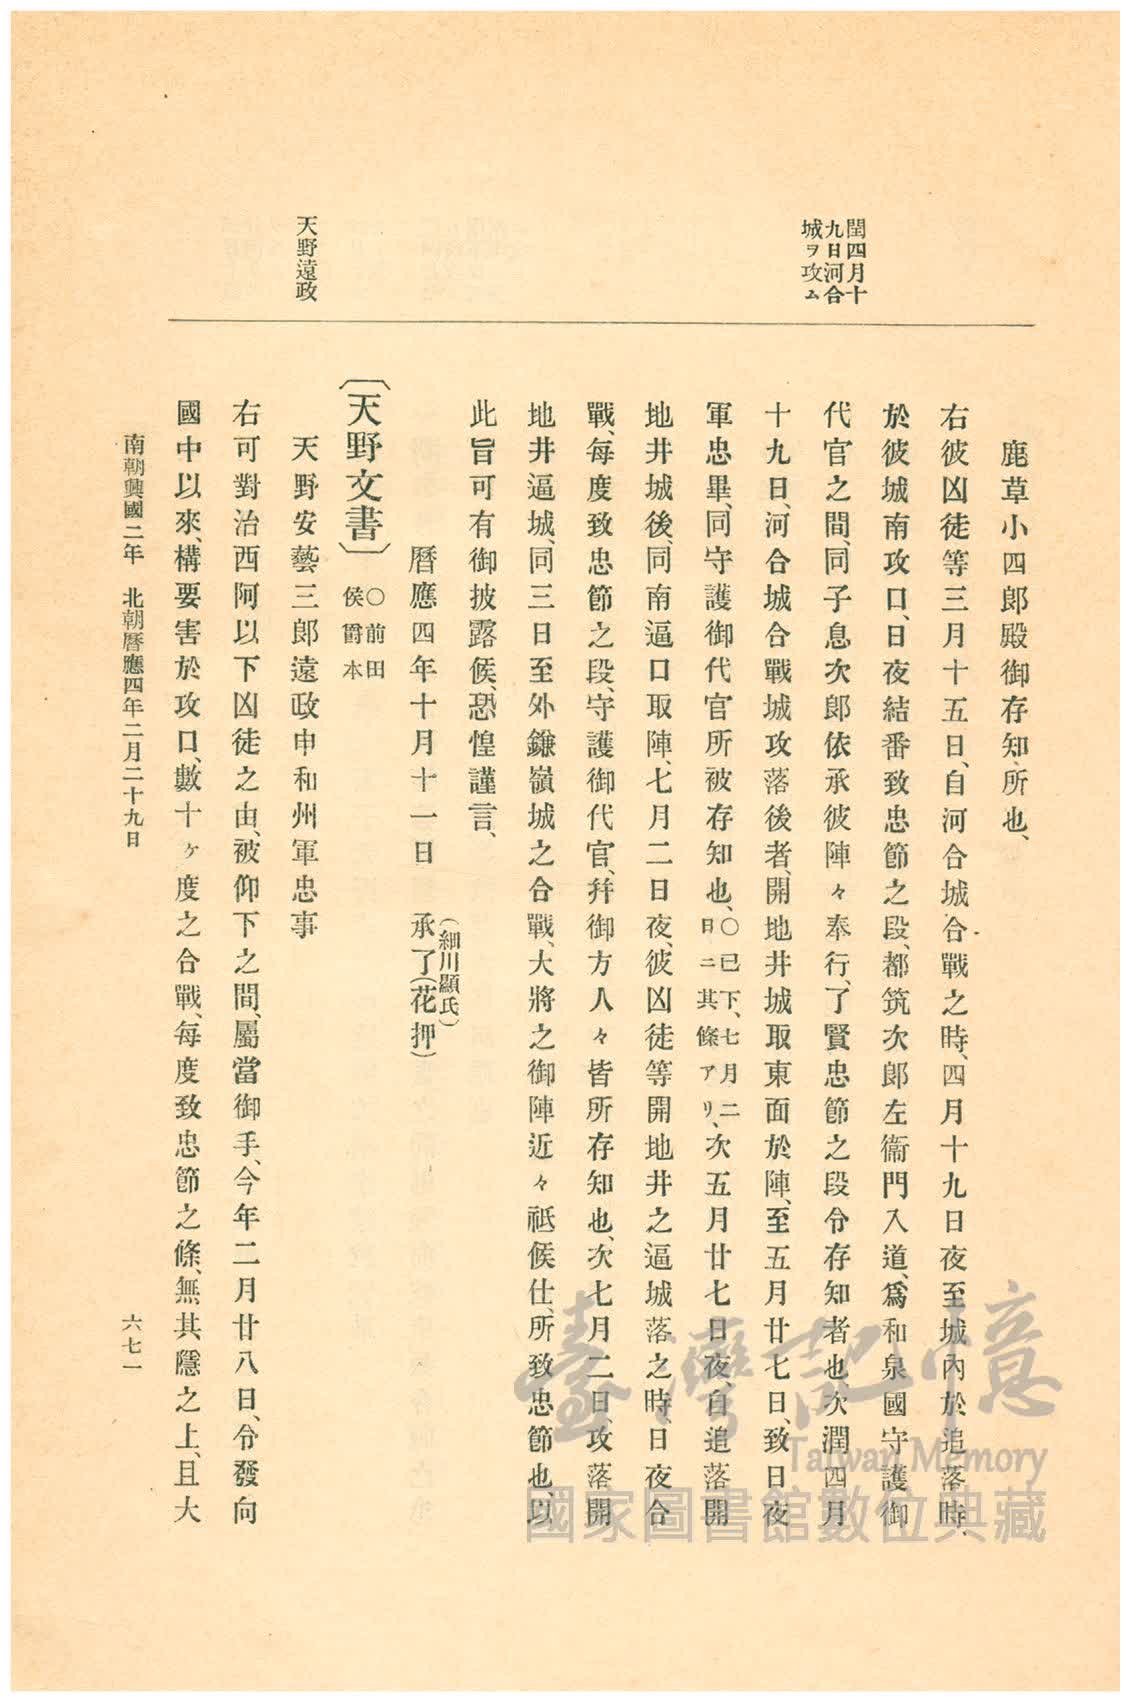 閏四月十
九日河合
城ヲ攻ム
天野遠政
鹿草小四郎殿御存知所也、
右彼凶徒等三月十五日、自河合城合戰之時、四月十九日夜至城內於追落時、
於彼城南攻口、日夜結番致忠節之段、都筑次郎左衞門入道、爲和泉國守護御
代官之間、同子息次郎依承彼陣々奉行、了賢忠節之段令存知者也、次潤四月
十九日、河合城合戰城攻落後者、開地井城取東面於陣、至五月廿七日、致日夜
軍忠畢、同守護御代官所被存知也、○已下、七月二日ニ其條アリ、次五月廿七日夜、自追落開
地井城後、同南逼口取陣、七月二日夜、彼凶徒等開地井之逼城落之時、日夜合
戰、每度致忠節之段、守護御代官、幷御方人々皆所存知也、次七月二日、攻落開
地井逼城、同三日至外鎌嶺城之合戰、大將之御陣近々祗候仕、所致忠節也、以
此旨可有御披露候、恐惶謹言、
曆應四年十月十一日 承了(花押)
(細川顯氏)
〔天野文書〕 ○前田侯爵本
天野安藝三郎遠政申和州軍忠事
右可對治西阿以下凶徒之由、被仰下之間、屬當御手、今年二月廿八日、令發向
國中以來、構要害於攻口、數十ヶ度之合戰、每度致忠節之條、無其隱之上、且大
南朝興國二年 北朝曆應四年二月二十九日
六七一
臺灣記憶
Taiwan Memory
國家圖書館數位典藏